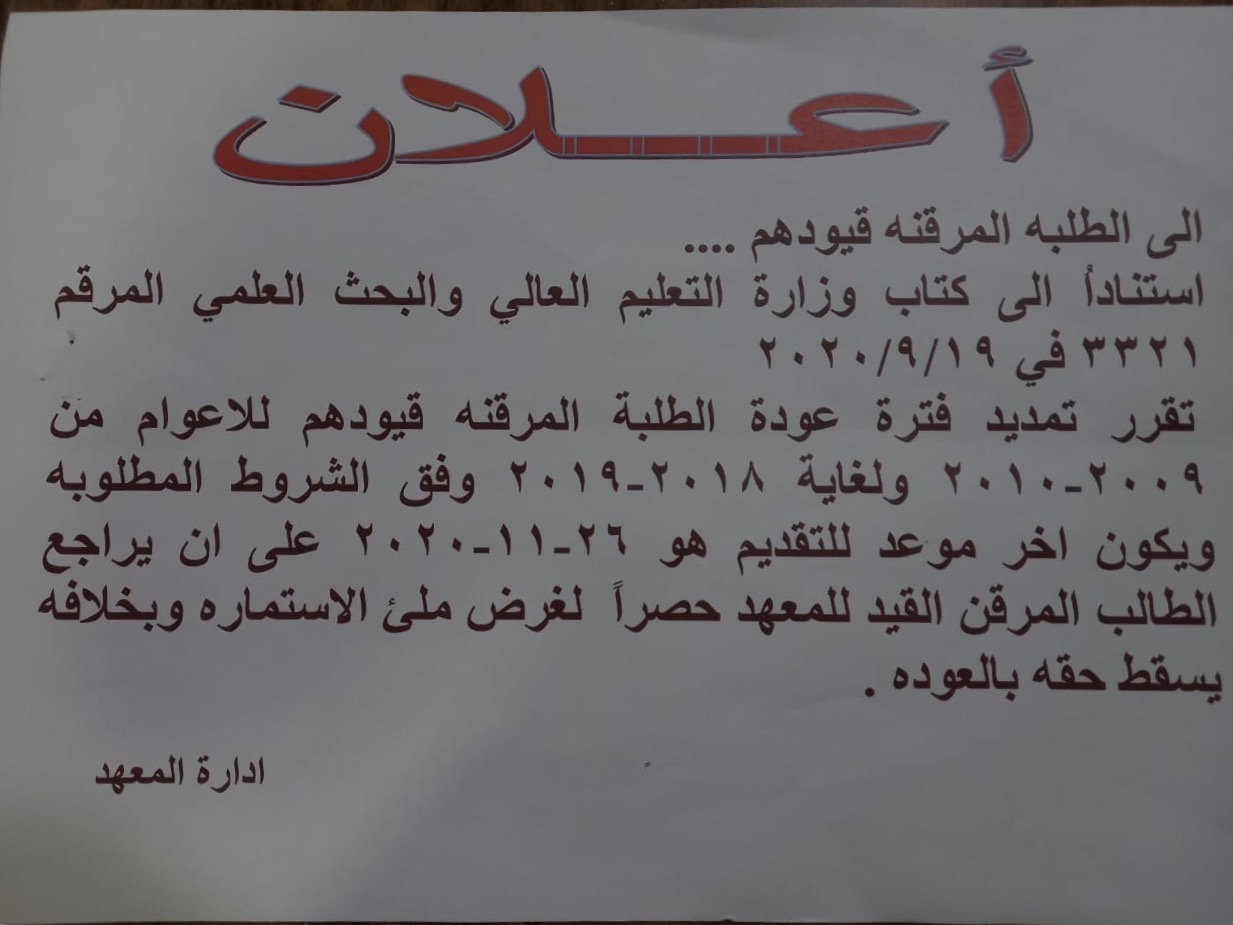 أعـــلان
الى الطلبه المرقنه قيودهم ....
استناداً الى كتاب وزارة التعليم العالي والبحث العلمي المرقم
٣٣٢١ في ٢٠٢٠/٩/١٩
تقرر تمديد فترة عودة الطلبة المرقنه قيودهم للاعوام من
٢٠٠٩-٢٠١٠ ولغاية ٢٠١٨-٢٠١٩ وفق الشروط المطلوبه
ويكون اخر موعد للتقديم هو ٢٦-١١-٢٠٢٠ على ان يراجع
الطالب المرقن القيد للمعهد حصراً لغرض ملئ الاستماره وبخلافه
يسقط حقه بالعوده .
ادارة المعهد